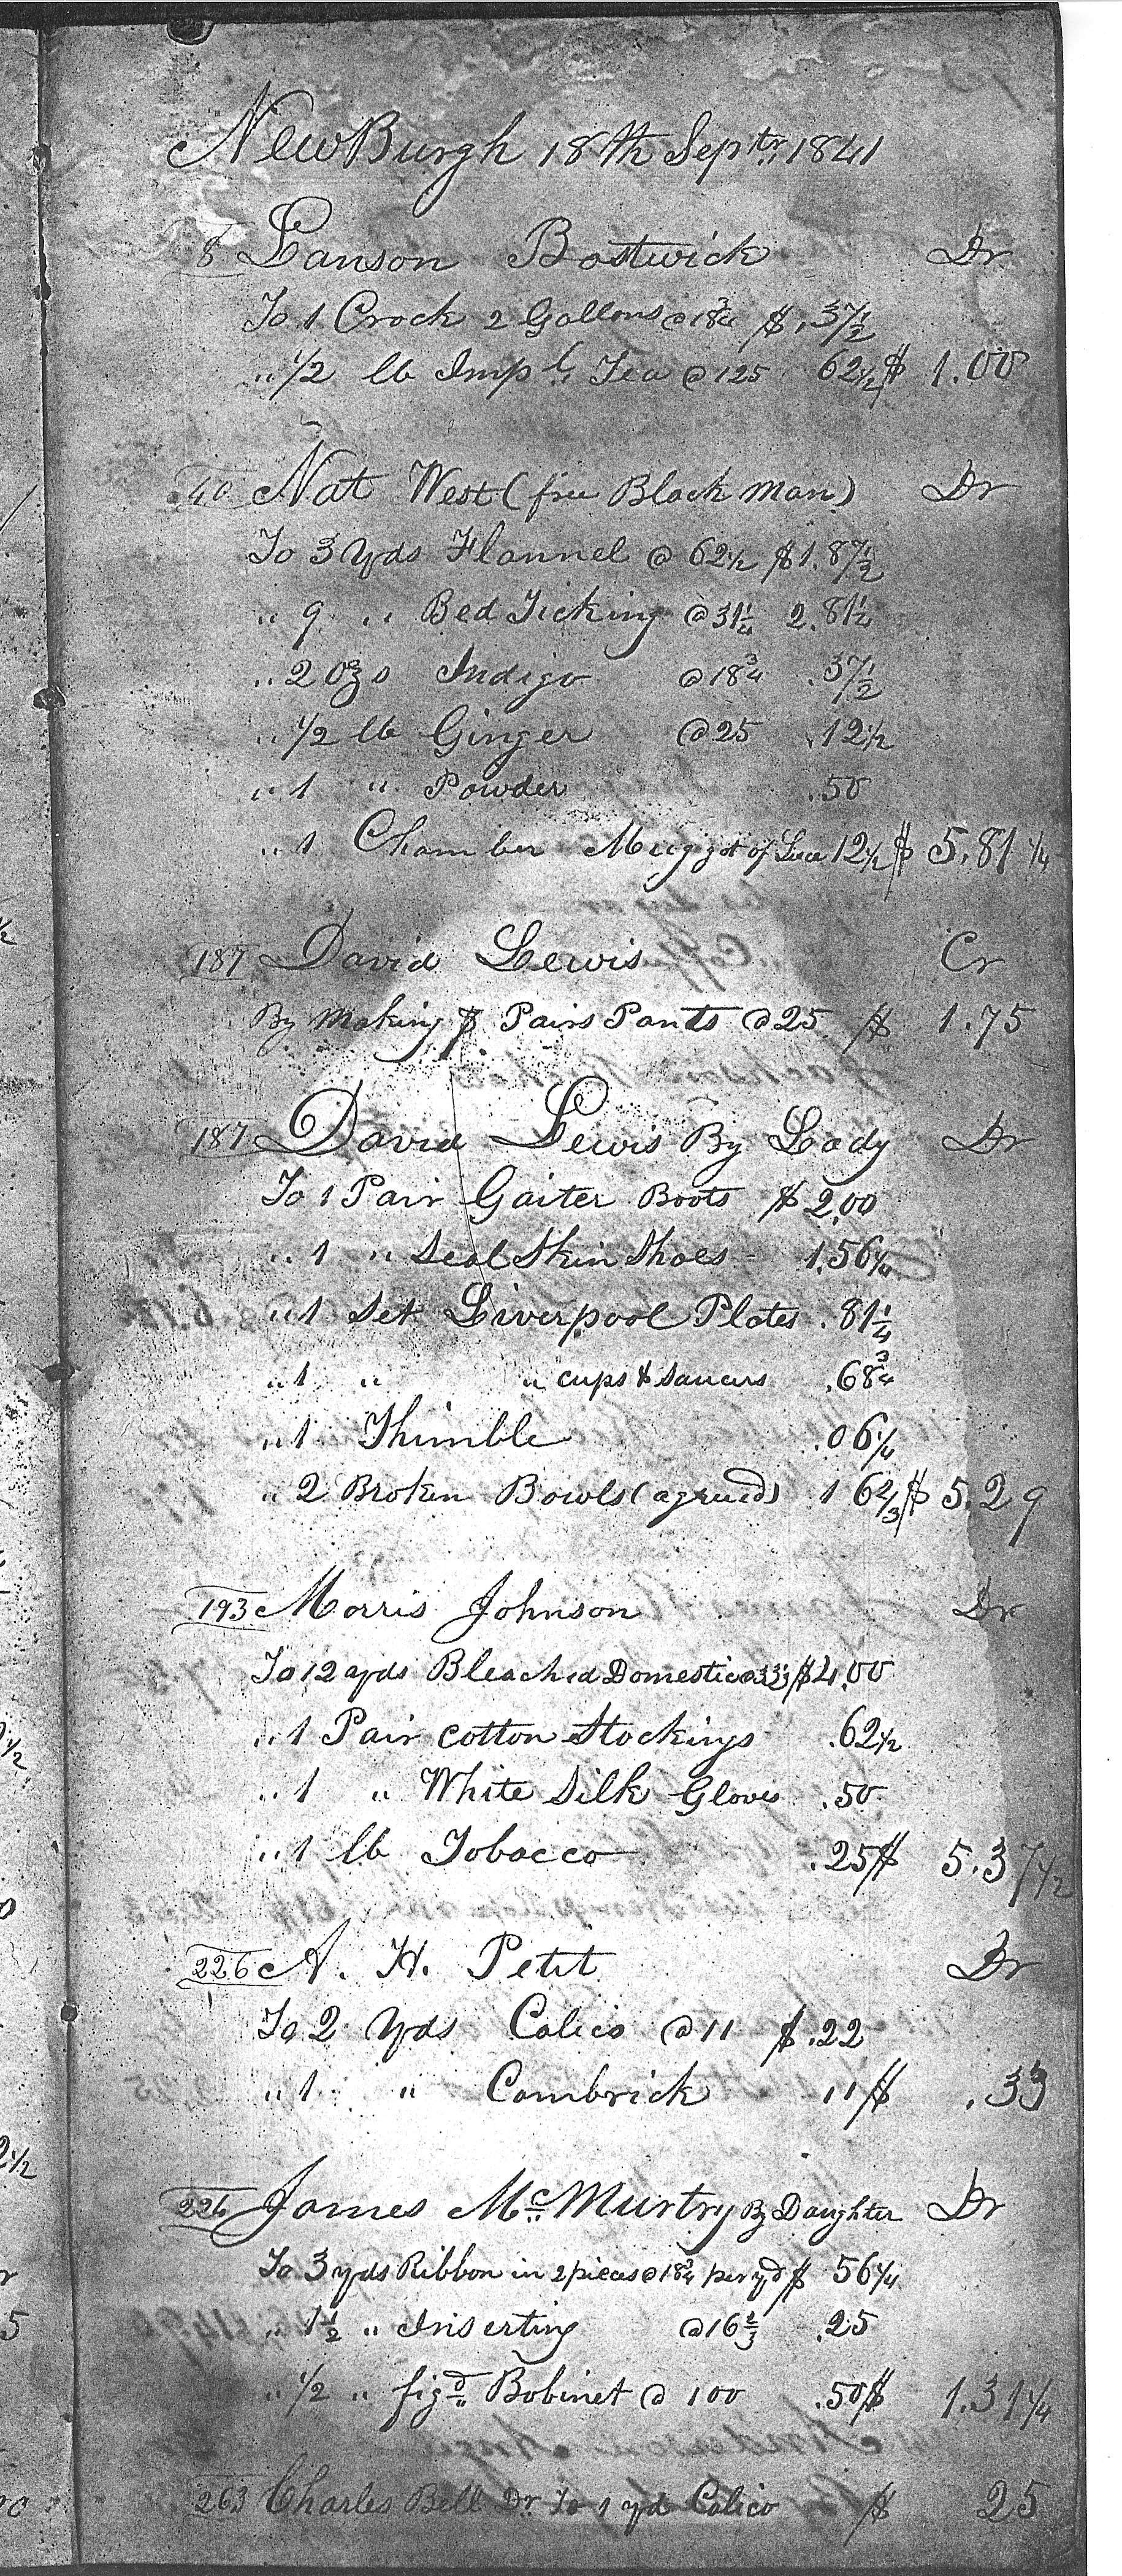 NewBurgh 18th Septr. 1841
8 Lanson Bostwick Dr
To 1 Crock 2 Gallons @ 18¾ $ .37½
" ½ lb Impl. Tea @ 125 62½ $ 1.00
40 Nat West (free Black man) Dr
To 3 Yds Flannel @ 62½ $1.87½
" 9 " Bed Ticking @ 31¼ 2.81¼
" 2 ozs Indigo @ 18¾ .37½
" ½ lb Ginger @ 25 .12½
" 1 " Powder .50
" 1 Chamber Mug got of 12½ $ 5.81¼
187 David Lewis Cr
By Making 7 Pairs Pants @ 25 $ 1.75
187 David Lewis By Lady Dr
To 1 Pair Gaiter Boots $ 2.00
" 1 " Seal Skin Shoes - 1.56¼
" 1 Set Liverpool Plates .81¼
" 1 " " cups & saucers .68¾
" 1 Thimble .06¼
" 2 Broken Bowls (agrued) 16⅔ $ 5.29
193 Morris Johnson Dr
To 12 yds Bleached Domestic @ 33⅓ $4.00
" 1 Pair Cotton Stockings .62½
" 1 " White Silk Gloves .50
" 1 lb Tobacco .25 $ 5.37½
226 A. H. Petit Dr
To 2 Yds Calico @ 11 $ .22
" 1 " Cambrick 11 $ .33
224 James Mc Murtry By Daughter Dr
To 3 yds Ribbon in 2 pieces @ 18¾ per yd $ 56¼
" 1½ " Inserting @ 16⅔ .25
" ½ " figd. Bobinet @ 100 .50 $ 1.31¼
263 Charles Bell Dr To 1 yd Calico $ 25